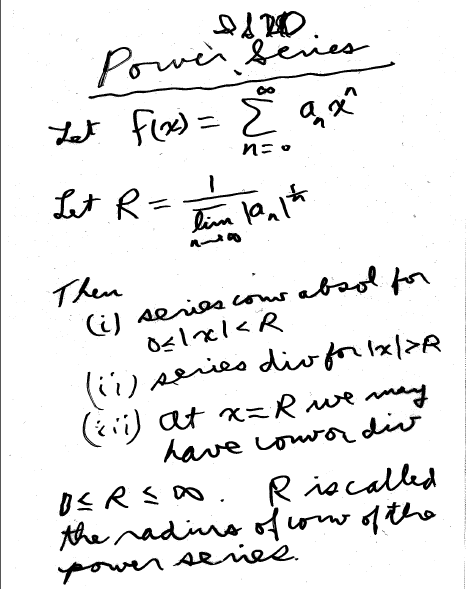 Power Series
Let f(x) = ∑_{n=0}^{∞} a_n x^n
Let R = 1 / \overline{lim}_{n→∞} |a_n|^{1/n}
Then
(i) series conv absol for
0≤|x|<R
(ii) series div for |x|>R
(iii) at x=R we may
have conv or div
0≤R≤∞. R is called
the radius of conv of the
power series.